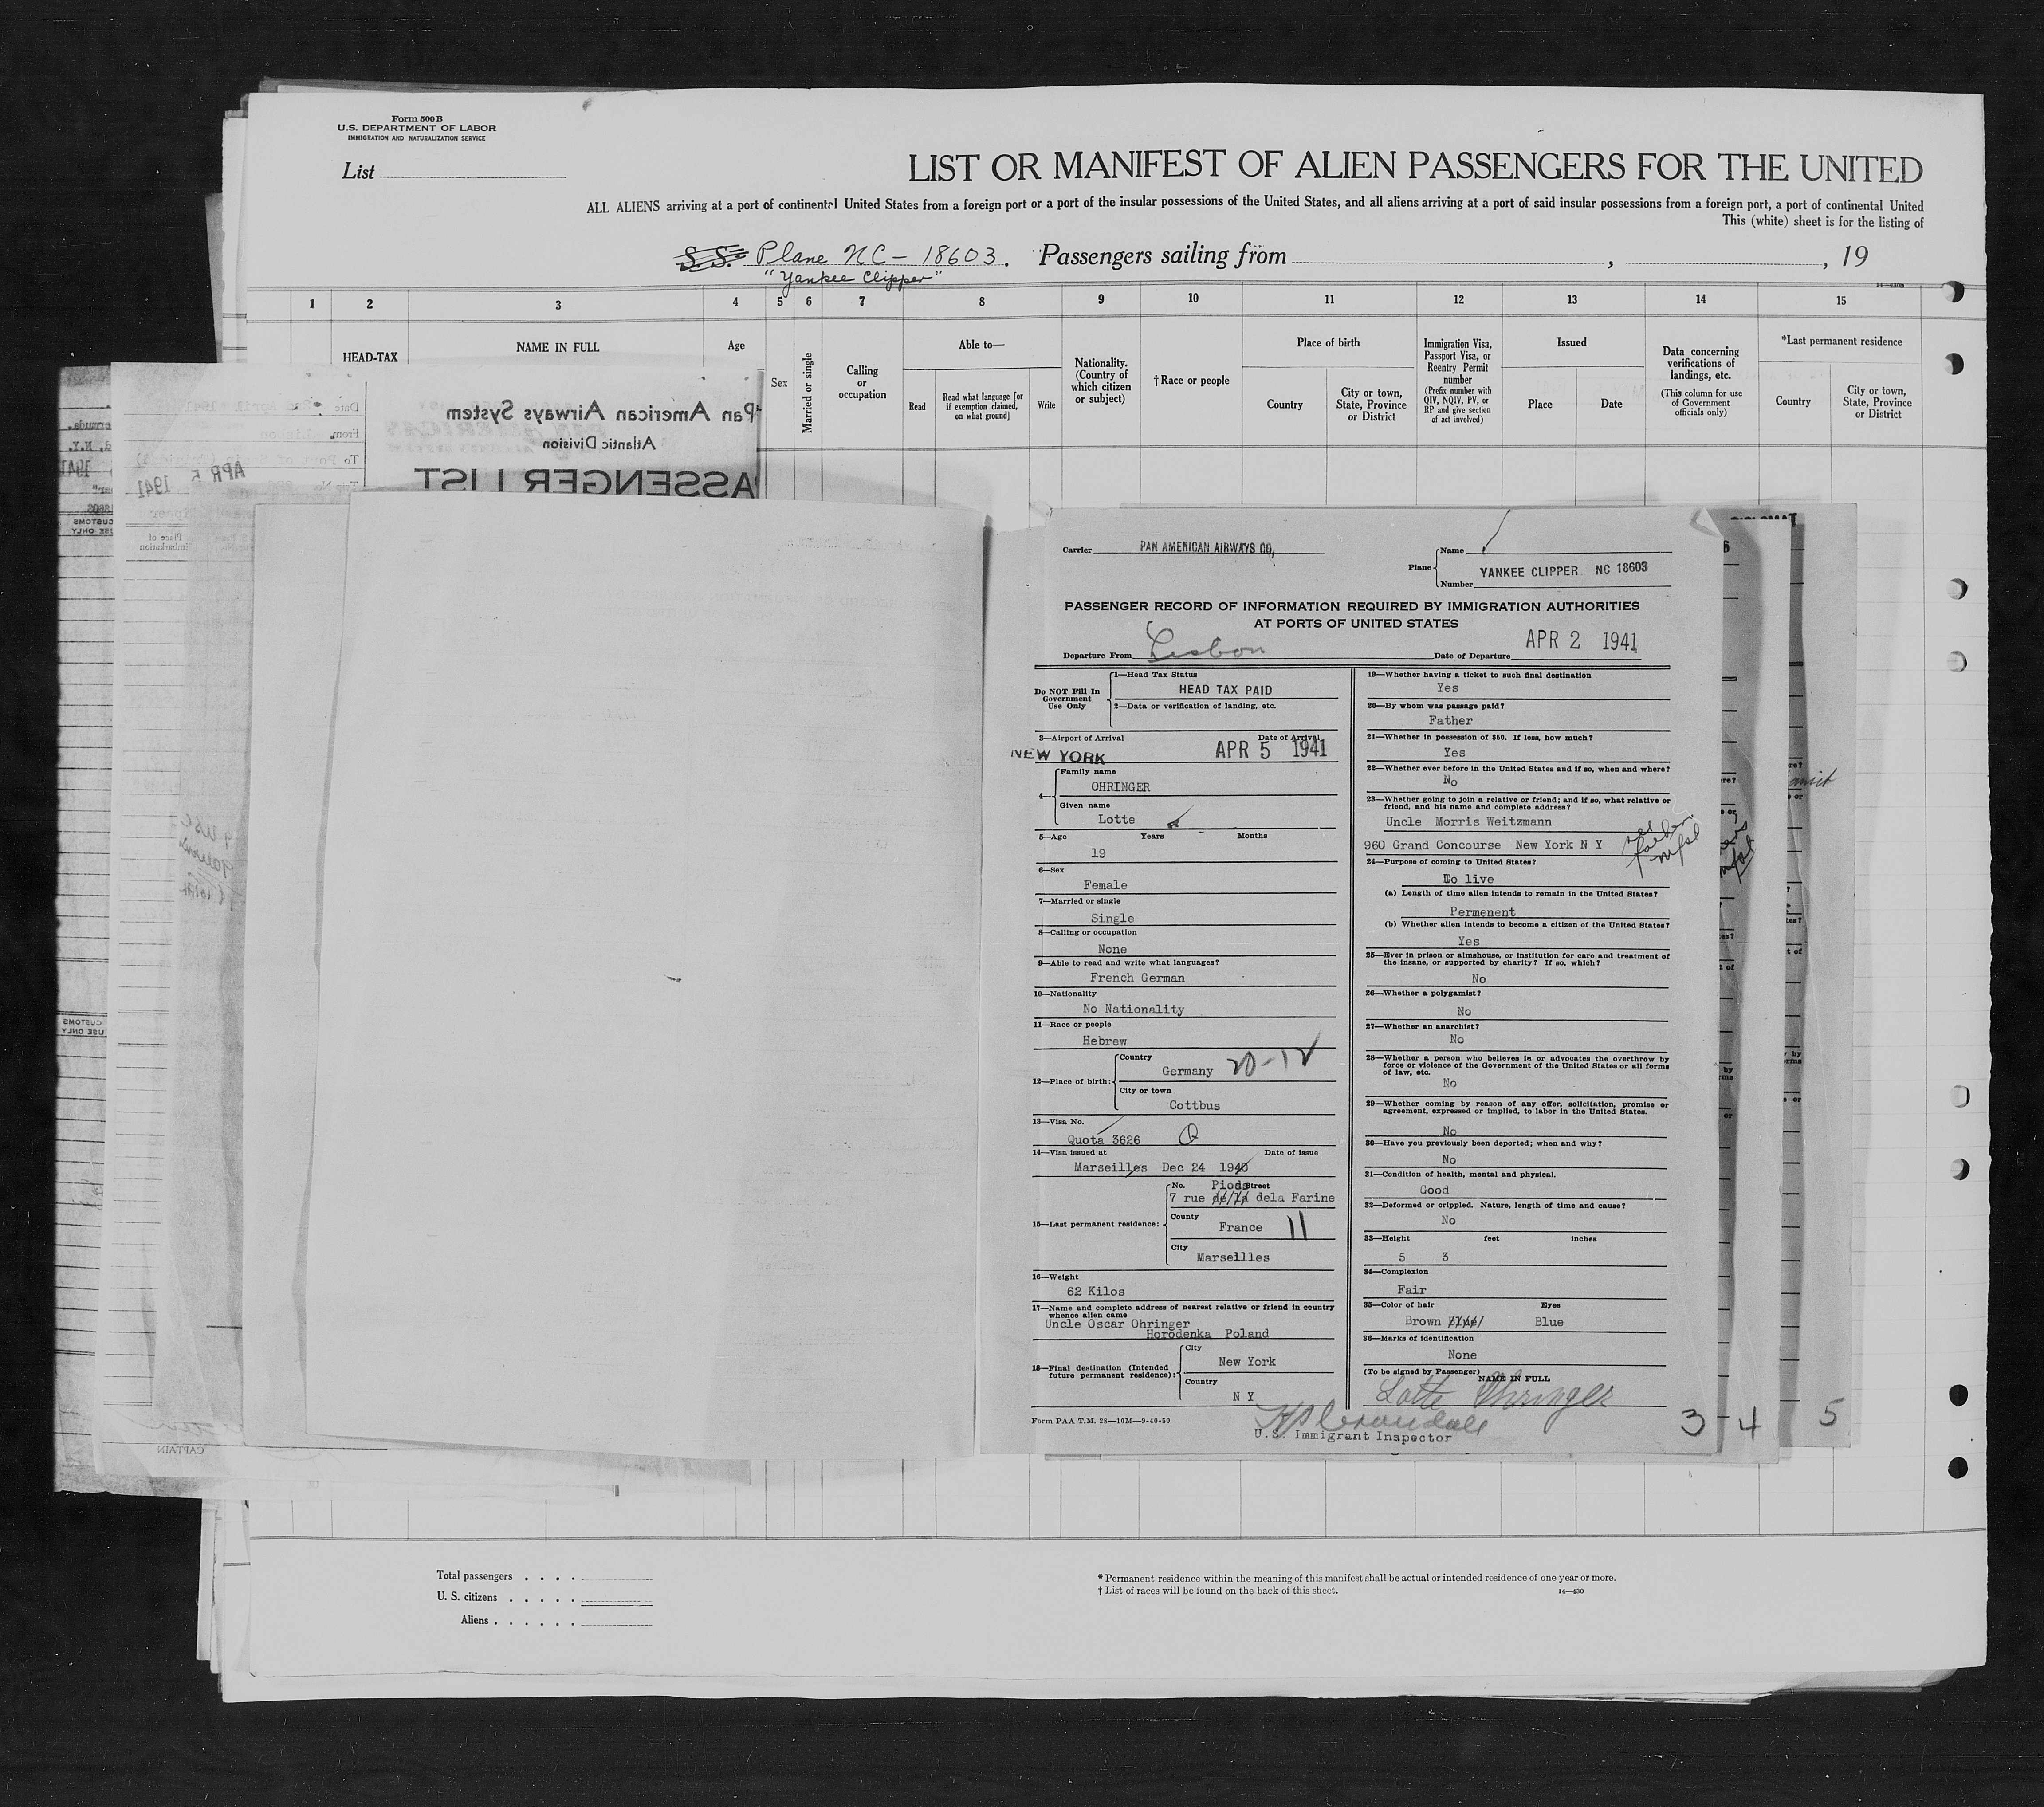 Form 500 B
U.S. DEPARTMENT OF LABOR
IMMIGRATION AND NATURALIZATION SERVICE
List
LIST OR MANIFEST OF ALIEN PASSENGERS FOR THE UNITED
ALL ALIENS arriving at a port of continental United States from a foreign port or a port of the insular possessions of the United States, and all aliens arriving at a port of said insular possessions from a foreign port, a port of continental United
This (white) sheet is for the listing of
S. S. Plane NC-18603. Passengers sailing from , , 19
"Yankee Clipper"
1 2 3 4 5 6 7 8 9 10 11 12 13 14 15
HEAD-TAX
NAME IN FULL
Age
Sex
Married or single
Calling or occupation
Able to—
Read
Read what language [or if exemption claimed, on what ground]
Write
Nationality. (Country of which citizen or subject)
†Race or people
Place of birth
Country
City or town, State, Province or District
Immigration Visa, Passport Visa, or Reentry Permit number
(Prefix number with QIV, NQIV, PV, or RP and give section of act involved)
Issued
Place
Date
Data concerning verifications of landings, etc.
(This column for use of Government officials only)
*Last permanent residence
Country
City or town, State, Province or District
Pan American Airways System
Atlantic Division
PASSENGER LIST
APR 5 1941
CUSTOMS USE ONLY
CUSTOMS USE ONLY
CAPTAIN
Carrier PAN AMERICAN AIRWAYS CO,
Plane Name
YANKEE CLIPPER NC 18603
Number
PASSENGER RECORD OF INFORMATION REQUIRED BY IMMIGRATION AUTHORITIES
AT PORTS OF UNITED STATES
Departure From Lisbon Date of Departure APR 2 1941
Do NOT Fill In Government Use Only
1—Head Tax Status
HEAD TAX PAID
2—Data or verification of landing, etc.
3—Airport of Arrival Date of Arrival
NEW YORK APR 5 1941
4— Family name
OHRINGER
Given name
Lotte
5—Age Years Months
19
6—Sex
Female
7—Married or single
Single
8—Calling or occupation
None
9—Able to read and write what languages?
French German
10—Nationality
No Nationality
11—Race or people
Hebrew
12—Place of birth: Country
Germany 20-12
City or town
Cottbus
13—Visa No.
Quota 3626 Q
14—Visa issued at Date of issue
Marseilles Dec 24 1940
15—Last permanent residence:
No. Street
7 rue dela Farine
County
France 11
City
Marsellles
16—Weight
62 Kilos
17—Name and complete address of nearest relative or friend in country whence alien came
Uncle Oscar Ohringer
Horodenka Poland
18—Final destination (Intended future permanent residence):
City
New York
Country
N Y
Form PAA T.M. 28—10M—9-40-50
19—Whether having a ticket to such final destination
Yes
20—By whom was passage paid?
Father
21—Whether in possession of $50. If less, how much?
Yes
22—Whether ever before in the United States and if so, when and where?
No
23—Whether going to join a relative or friend; and if so, what relative or friend, and his name and complete address?
Uncle Morris Weitzmann
960 Grand Concourse New York N Y
24—Purpose of coming to United States?
To live
(a) Length of time alien intends to remain in the United States?
Permenent
(b) Whether alien intends to become a citizen of the United States?
Yes
25—Ever in prison or almshouse, or institution for care and treatment of the insane, or supported by charity? If so, which?
No
26—Whether a polygamist?
No
27—Whether an anarchist?
No
28—Whether a person who believes in or advocates the overthrow by force or violence of the Government of the United States or all forms of law, etc.
No
29—Whether coming by reason of any offer, solicitation, promise or agreement, expressed or implied, to labor in the United States.
No
30—Have you previously been deported; when and why?
No
31—Condition of health, mental and physical.
Good
32—Deformed or crippled. Nature, length of time and cause?
No
33—Height feet inches
5 3
34—Complexion
Fair
35—Color of hair Eyes
Brown Blue
36—Marks of identification
None
(To be signed by Passenger) NAME IN FULL
Lotte Ohringer
U.S. Immigrant Inspector
3 4 5
Total passengers . . . .
U. S. citizens . . . . .
Aliens . . . . . .
* Permanent residence within the meaning of this manifest shall be actual or intended residence of one year or more.
† List of races will be found on the back of this sheet.
14—430